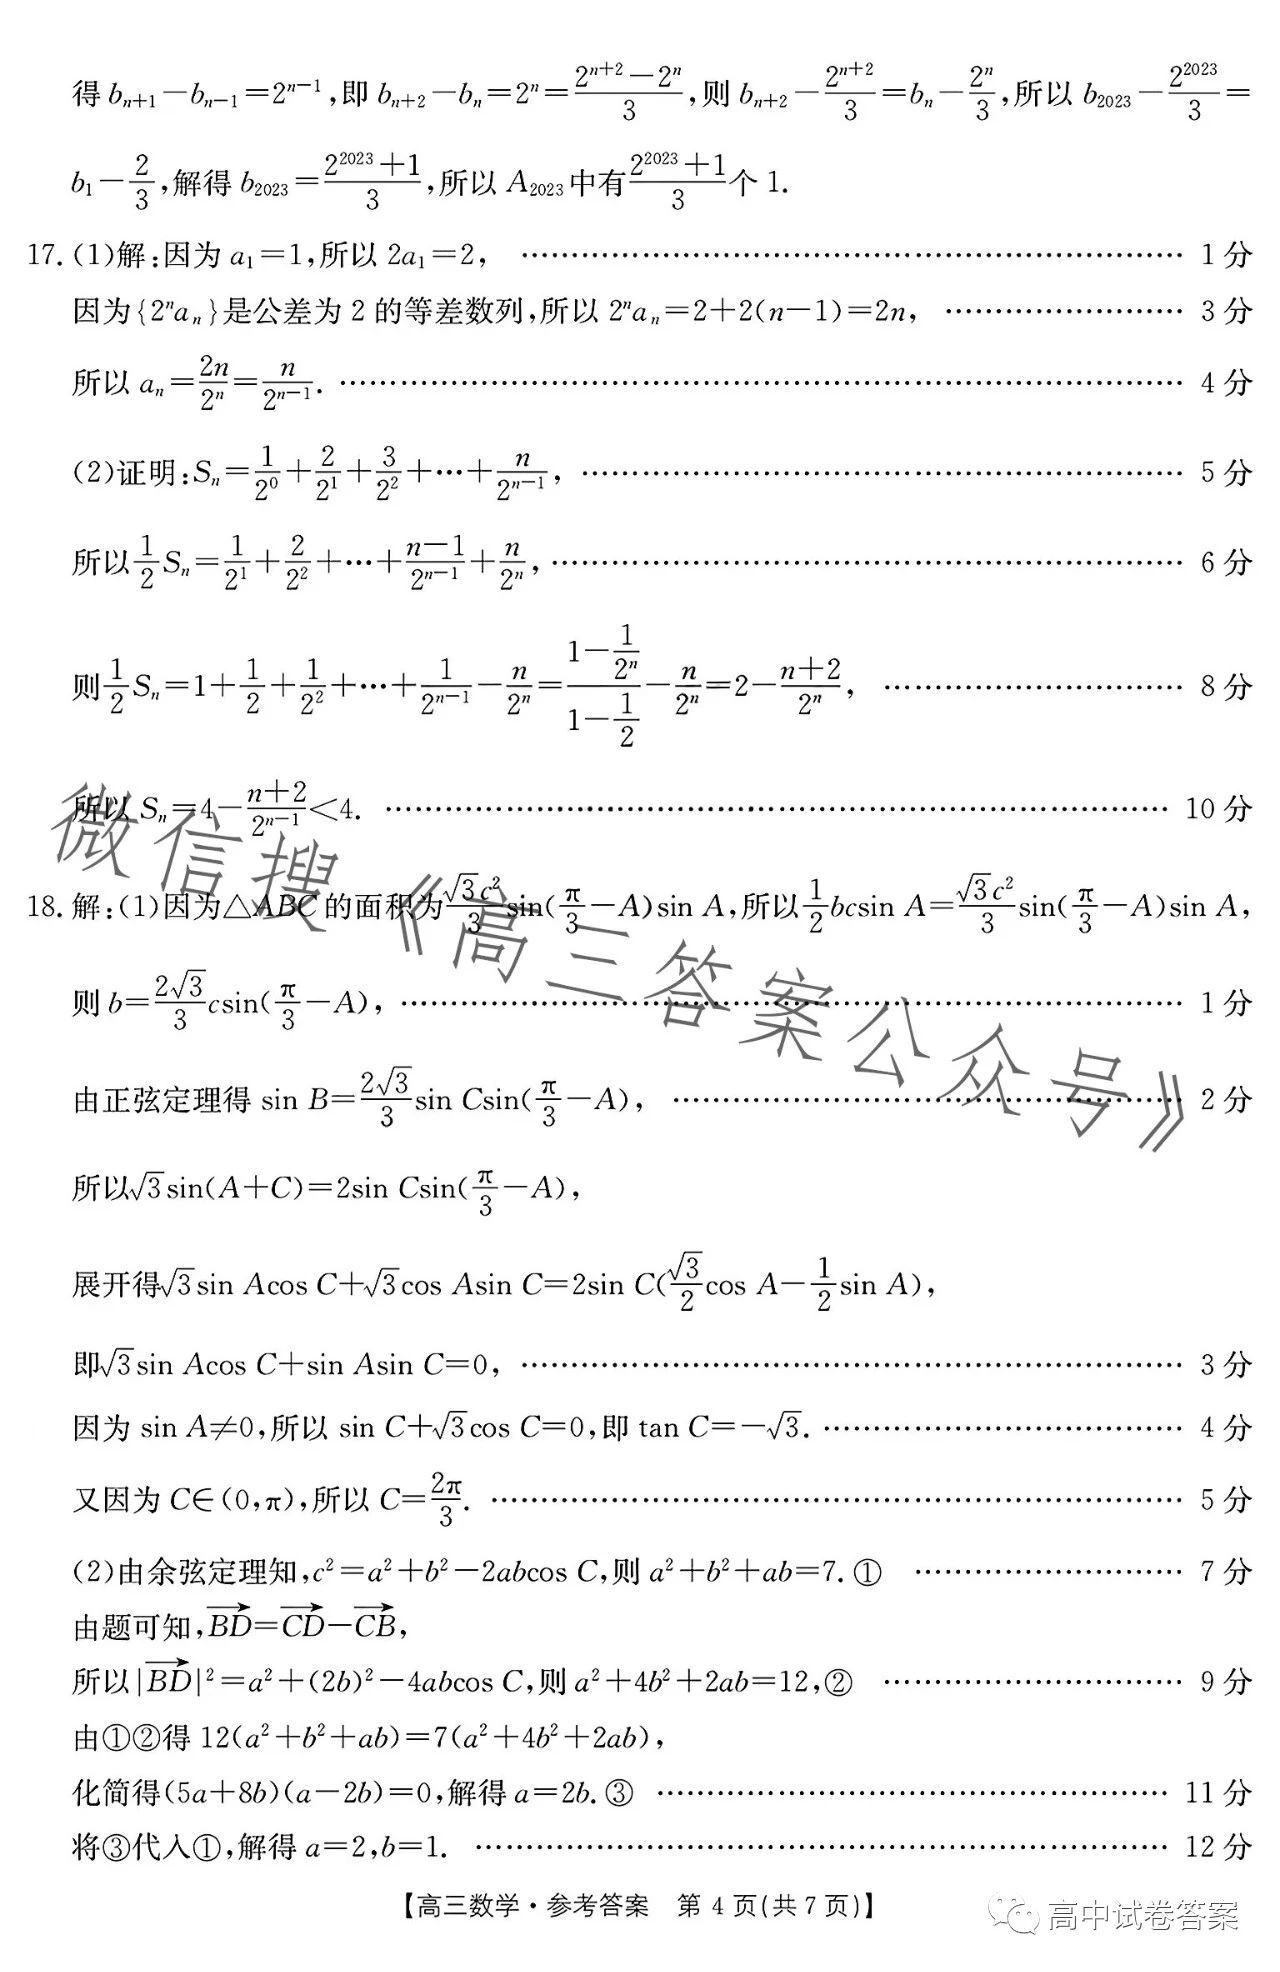 得 bₙ₊₁－bₙ₋₁＝2ⁿ⁻¹，即 bₙ₊₂－bₙ＝2ⁿ＝(2ⁿ⁺²－2ⁿ)/3，则 bₙ₊₂－2ⁿ⁺²/3＝bₙ－2ⁿ/3，所以 b₂₀₂₃－2²⁰²³/3＝
b₁－2/3，解得 b₂₀₂₃＝(2²⁰²³＋1)/3，所以 A₂₀₂₃中有(2²⁰²³＋1)/3个 1.
17. (1)解：因为 a₁＝1，所以 2a₁＝2， ………… 1 分
因为{2ⁿaₙ}是公差为 2 的等差数列，所以 2ⁿaₙ＝2＋2(n－1)＝2n， ………… 3 分
所以 aₙ＝2n/2ⁿ＝n/2ⁿ⁻¹. ………… 4 分
(2)证明：Sₙ＝1/2⁰＋2/2¹＋3/2²＋…＋n/2ⁿ⁻¹， ………… 5 分
所以1/2 Sₙ＝1/2¹＋2/2²＋…＋(n－1)/2ⁿ⁻¹＋n/2ⁿ， ………… 6 分
则1/2 Sₙ＝1＋1/2＋1/2²＋…＋1/2ⁿ⁻¹－n/2ⁿ＝(1－1/2ⁿ)/(1－1/2)－n/2ⁿ＝2－(n＋2)/2ⁿ， ………… 8 分
所以 Sₙ＝4－(n＋2)/2ⁿ⁻¹＜4. ………… 10 分
18. 解：(1)因为△ABC 的面积为√3c²/3 sin(π/3－A)sin A，所以1/2 bcsin A＝√3c²/3 sin(π/3－A)sin A，
则 b＝2√3/3 csin(π/3－A)， ………… 1 分
由正弦定理得 sin B＝2√3/3 sin Csin(π/3－A)， ………… 2 分
所以√3sin(A＋C)＝2sin Csin(π/3－A)，
展开得√3sin Acos C＋√3cos Asin C＝2sin C(√3/2 cos A－1/2 sin A)，
即√3sin Acos C＋sin Asin C＝0， ………… 3 分
因为 sin A≠0，所以 sin C＋√3cos C＝0，即 tan C＝－√3. ………… 4 分
又因为 C∈(0，π)，所以 C＝2π/3. ………… 5 分
(2)由余弦定理知，c²＝a²＋b²－2abcos C，则 a²＋b²＋ab＝7. ① ………… 7 分
由题可知，BD→＝CD→－CB→，
所以|BD→|²＝a²＋(2b)²－4abcos C，则 a²＋4b²＋2ab＝12，② ………… 9 分
由①②得 12(a²＋b²＋ab)＝7(a²＋4b²＋2ab)，
化简得(5a＋8b)(a－2b)＝0，解得 a＝2b. ③ ………… 11 分
将③代入①，解得 a＝2，b＝1. ………… 12 分
微信搜《高三答案公众号》
【高三数学·参考答案　第 4 页(共 7 页)】
高中试卷答案